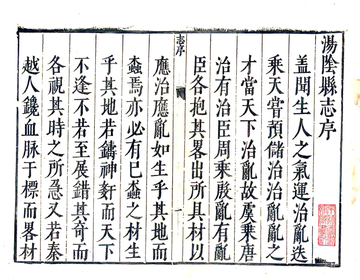 湯陰縣志序
蓋聞生人之氣運治亂迭
乘天嘗預儲治治亂亂之
才當天下治亂故虞乘唐
治有治臣周乘殷亂有亂
臣各抱其畧出所具材以
志序
應治應亂如生乎其地而
螙焉亦必有已螙之材生
乎其地若鑄神姧而天下
不逢不若至展錯其奇而
各視其時之所急又若秦
越人鑱血脉于標而畧材